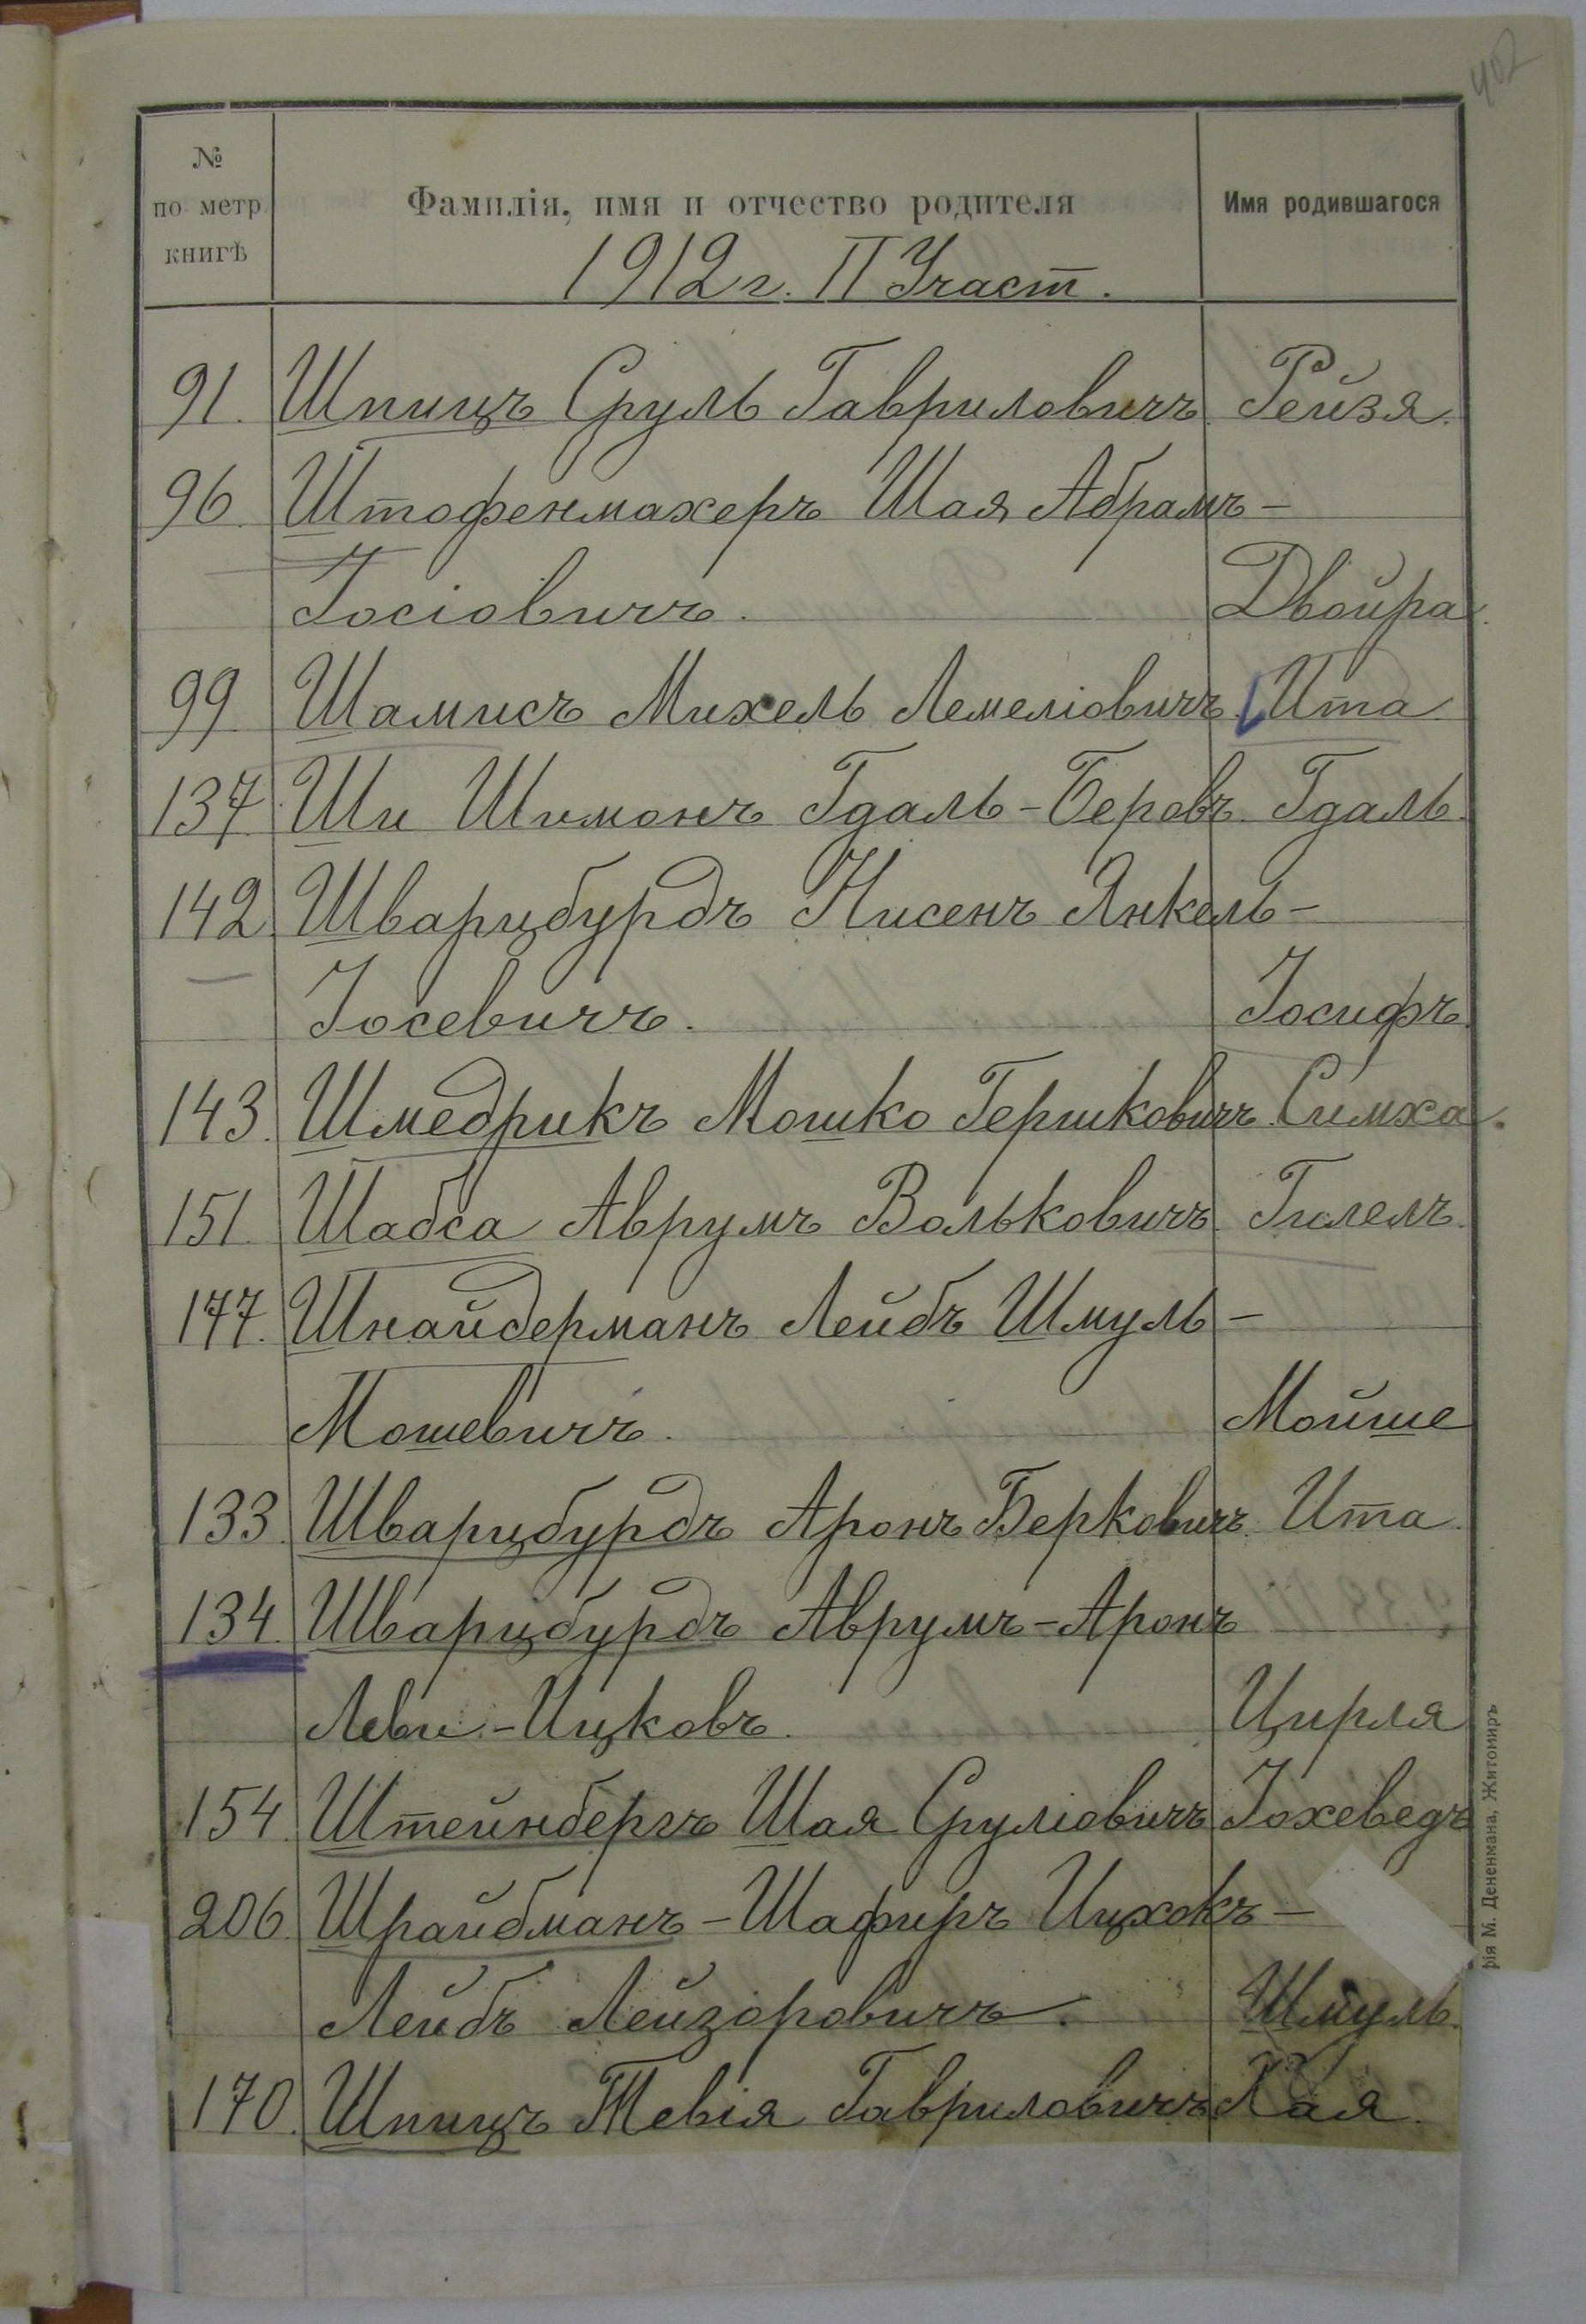 402
№
по метр.
книгѣ
Фамилія, имя и отчество родителя
Имя родившагося
1912 г. II Участ.
91. Шпицъ Сруль Гавриловичъ. Рейзя.
96. Штофенмахеръ Шая Абрамъ-
Іосіовичъ. Двойра.
99. Шамисъ Михель Лемеліовичъ. Ита
137. Ши Шимонъ Гдаль-Беровъ. Гдаль.
142. Шварцбурдъ Нисенъ Янкель-
Іосевичъ. Іосифъ.
143. Шмедрикъ Мошко Гершковичъ. Симха.
151. Шабса Аврумъ Вольковичъ. Гилелъ.
177. Шнайдерманъ Лейбъ Шмуль-
Мошевичъ. Мойше
133. Шварцбурдъ Аронъ Берковичъ. Ита.
134. Шварцбурдъ Аврумъ-Аронъ
Леви-Ицковъ. Цирля
154. Штейнбергъ Шая Сруліовичъ Іохеведъ
206. Шрайбманъ-Шафиръ Ицхокъ-
Лейбъ Лейзоровичъ. Шмуль.
170. Шпицъ Тевія Гавриловичъ Хая.
рія М. Дененмана, Житомиръ